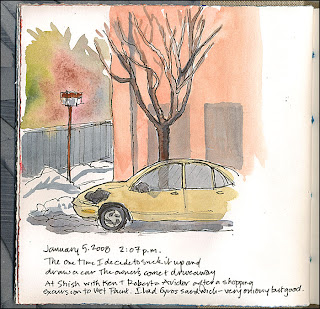 January 5. 2008 2:07 p.m.
The one time I decide to suck it up and
draw a car the owners come & drive away
At Shish with Ken & Roberta Avidor after a shopping
excursion to Wet Paint. I had Gyros sandwich - very ordinary but good.